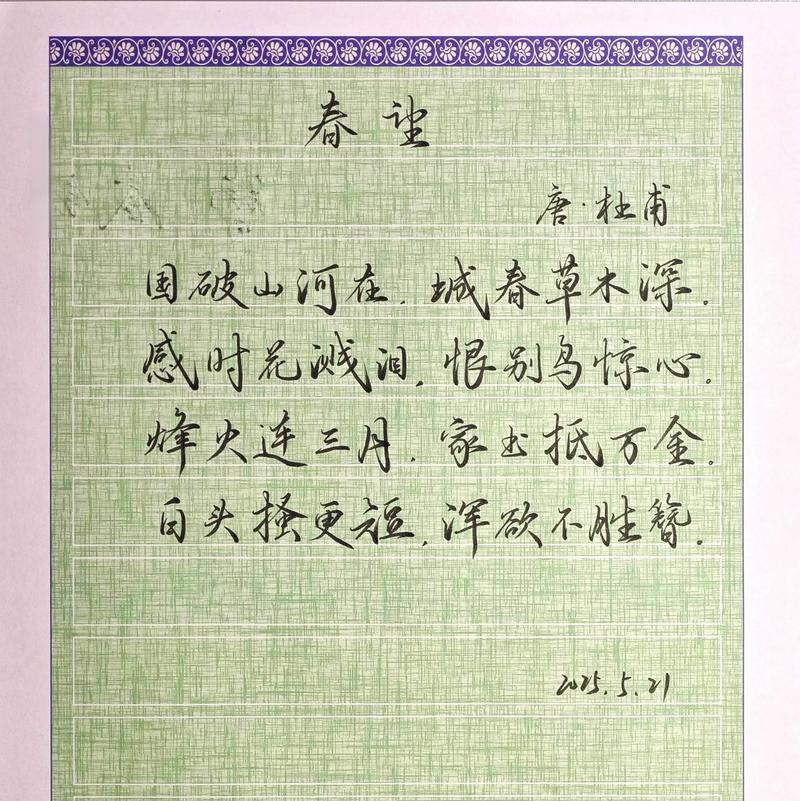 春望
唐·杜甫
国破山河在，城春草木深。
感时花溅泪，恨别鸟惊心。
烽火连三月，家书抵万金。
白头搔更短，浑欲不胜簪。
2025.5.21